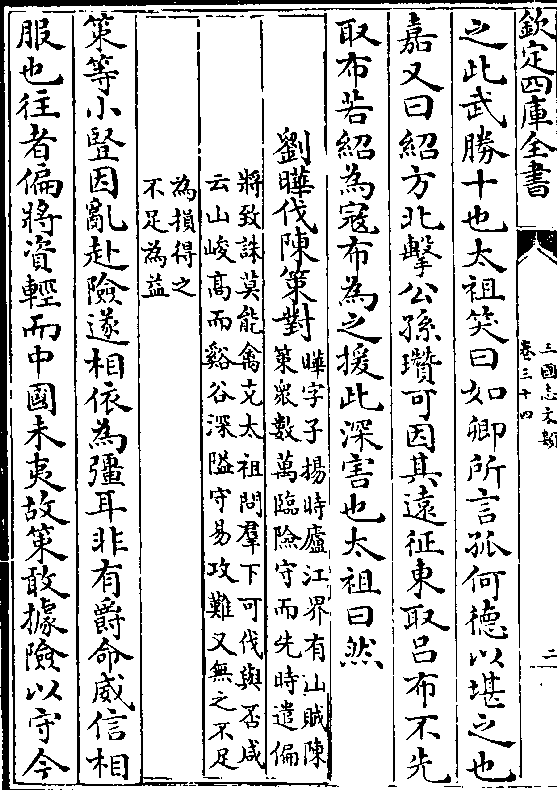 欽定四庫全書
三國志文類
卷三十四
二
之此武勝十也太祖笑曰如卿所言孤何德以堪之也
嘉又曰紹方北擊公孫瓚可因其遠征東取呂布不先
取布若紹為寇布為之援此深害也太祖曰然
劉曄伐陳策對
曄字子揚時廬江界有山賊陳
策衆數萬臨險守而先時遣偏
將致誅莫能禽克太祖問羣下可伐與否咸
云山峻髙而谿谷深隘守易攻難又無之不足
為損得之
不足為益
策等小豎因亂赴險遂相依為彊耳非有爵命威信相
服也往者偏將資輕而中國未夷故策敢據險以守今